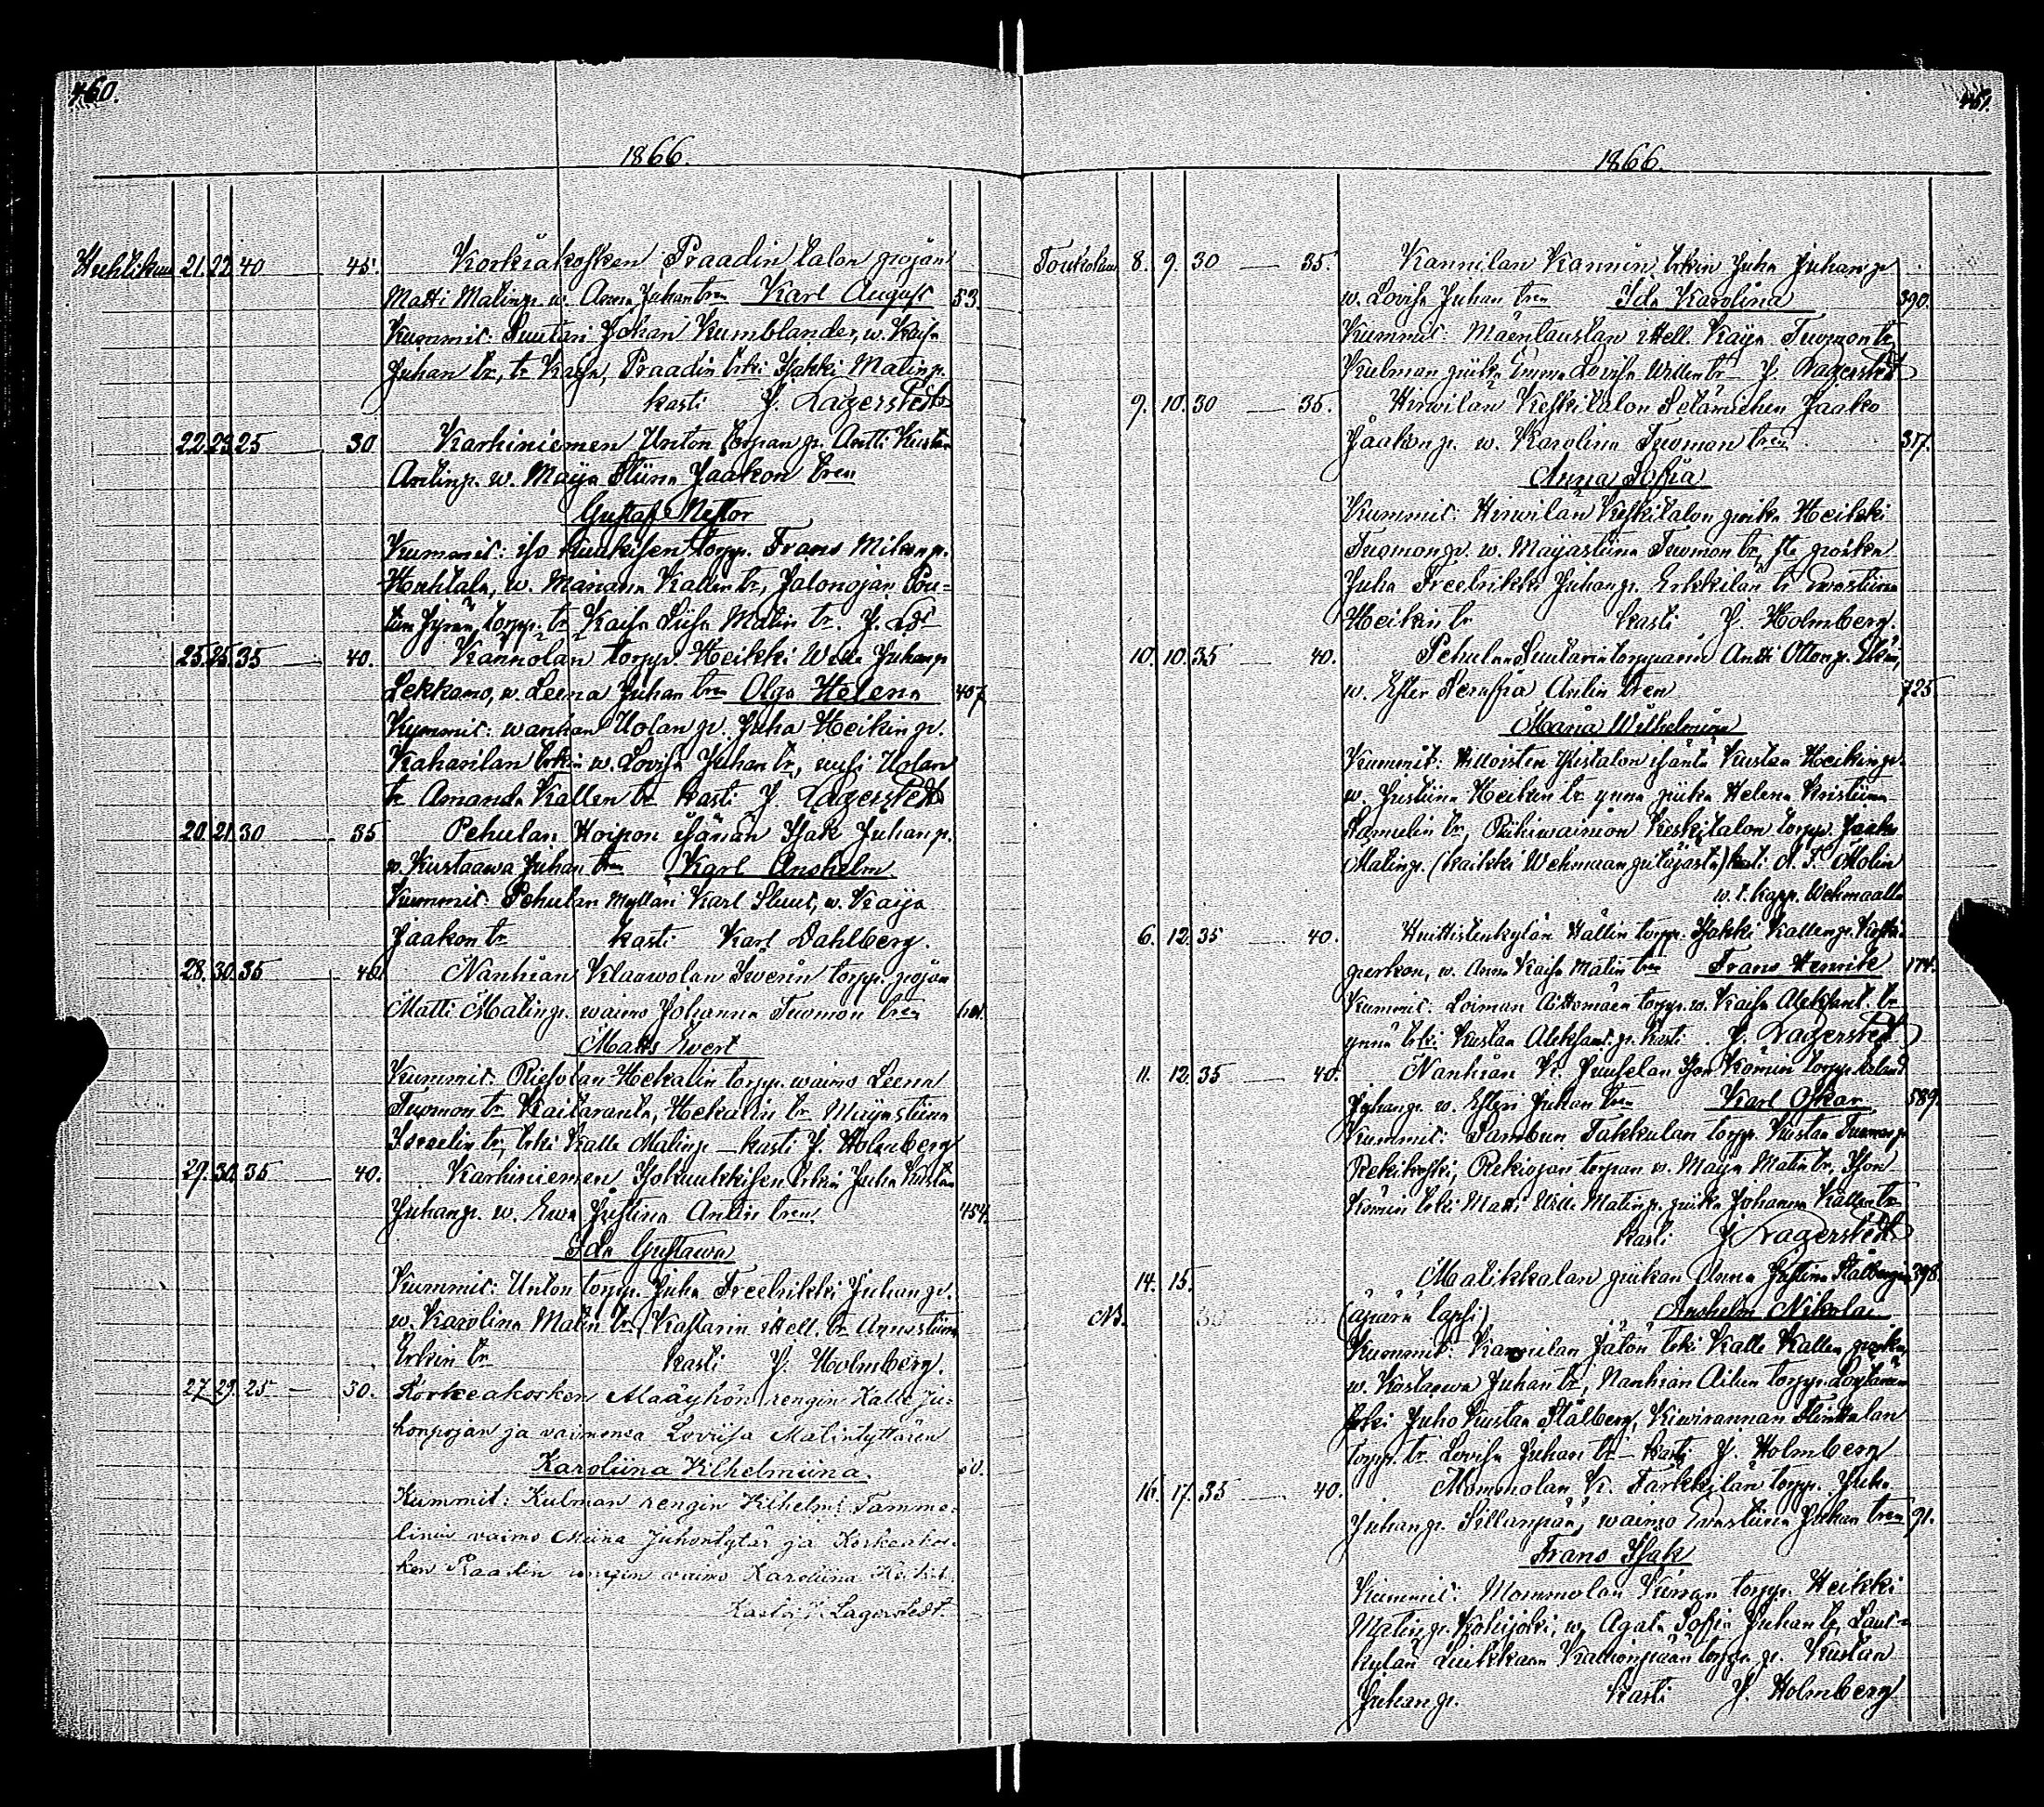 460.
1866.
Huhtikuu 21. 22. 40 — 45. Korkiakosken Praadin talon pojan
Matti Matinp. w. Anna Juhan tren Karl August 53.
Kummit: Suutari Johan Kumblander, w. Kaisa
Juhan tr, tr Kaisa, Praadin trki Isakki Matinp.
kasti J. Lagerstedt
22. 23. 25 — 30. Karhiniemen Unton torpan p. Antti Kustaa
Antinp. w. Maija Stiina Jaakon tren
Gustaf Nestor
Kummit: iso Kuukisen torpp. Frans Mikonp.
Huhtala, w. Mariana Kallen tr, Jalonojan
torpp. tr Kaisa Liisa Matin tr. J. Ldt
25. 25. 35 — 40. Kannolan torpp. Heikki Wille Juhanp
Lekkamo, w. Leena Juhan tren Olga Helena 407.
Kummit: wanhan Uotan p. Juha Heikinp.
Kaharilan trkin w. Lovisa Juhan tr, uusi Uotan
tr Amanda Kallen tr kasti J. Lagerstedt
20. 21. 30 — 35 Pehulan Hoipon isännän Isak Juhanp.
w. Kustaawa Juhan tren Karl Anshelm
Kummit Pehulan Myllari Karl Sluut, w. Kaija
Jaakon tr kasti Karl Dahlberg.
28. 30. 35 — 40. Nanhian Klaawolan Swerin torpp. pojan
Matti Matinp. waimo Johanna Tuomon tren
Matts Ewert
Kummit: Riesolan Hekalin torpp. waimo Leena
Tuomon tr Kaitaranta, Hekalin tr Maijastiina
Israelin tr, trki Kalle Matinp — kasti J. Holmberg
29. 30. 35 — 40. Karhiniemen Isokuukkisen trkin Juha Kustaa
Juhanp. w. Ewa Justina Antin tren 454.
Ida Gustawa
Kummit: Unton torpp. Juha Freedrikki Juhanp.
w. Karolina Matin tr, Kastarin itell. tr Annastiina
Erkin tr kasti J. Holmberg.
27. 29. 25 — 30. Korkeakosken Maäyhön rengin Kalle Ju=
honpojan ja vaimonsa Loviisa Matintyttären
Karoliina Vilhelmiina.
Kummit: Kulman rengin Vilhelmi Tamme=
linin vaimo Miina Juhontytär ja Korkeakos=
ken Raadin rengin vaimo Karoliina
Kastoi J. Lagerstedt.
1866.
Toukokuu 8. 9. 30 — 35. Kannilan Kannin trkin Juha Juhanp
w. Lovisa Juhan tren Ida Karolina 390.
Kummit: Mäentaustan itell. Kaija Tuomon tr,
Kulman piika Emma Lovisa Willen tr J. Lagerstedt
9. 10. 30 — 35. Hirwilän Keskitalon Setämiehen Jaako
Jaakonp. w. Karolina Tuomon tren 317.
Anna Sofia
Kummit: Hirwilän Keskitalon poika Heikki
Tuomonp. w. Maijastiina Tuomon tr, poika
Juha Freedrikki Juhanp. Erkkilän tr Ewastiina
Heikin tr kasti J. Holmberg.
10. 10. 35 — 40. Pehulan Suutarin torpparin Antti Ottonp.
w. Ester Serafia Antin tren 725.
Maria Wilhelmina
Kummit: Willoisten Ylistalon isäntä Kustaa Heikinp.
w. Justiina Heikin tr ynnä piika Helena Kristiina
Samulin tr, Riihiwainion Keskitalon torpp. Jaako
Matinp. (kaikki Wehmaan pitäjästä) kasti A. F. Molin
w. t. kapp. Wehmaalla
6. 12. 35 — 40. Huittistenkylän Hällin torpp. Isakki Kallenp. Koski=
perkon, w. Anna Kaisa Matin tren Frans Henrik 174.
Kummit: Loiman Aittomäen torpp. w. Kaisa Aleksant. tr
ynnä trki Kustaa Aleksant. p. kasti J. Lagerstedt
11. 12. 35 — 40. Nanhian K. Juuselan Ison Kömin torpp.
Juhanp. w. Esteri Juhan tren Karl Oskar 589.
Kummit: Sambun Takkulan torpp. Kustaa Tuomonp
Rekikoski, Rekiojan torpan w. Maija Matin tr, Ison
Kömin trki Matti Wille Matinp. piika Johanna Kallen tr
kasti J. Lagerstedt
14. 15. Matikkalan piikan Anna Justina Stålbergin 398.
NB. (äpärä lapsi) Anshelm Nikolai
Kummit: Kannilan Jälön trki Kalle Kallen poika
w. Kustaawa Juhan tr, Nanhian Ailun torpp.
trki Juho Kustaa Stålberg, Kiwirannan
torpp. tr Lovisa Juhan tr — kasti J. Holmberg
16. 17. 35 — 40. Mommolan K. Tarkkilan torpp. Juha
Juhanp. Sillanpään, waimo Ewastiina Juhan tren 91.
Frans Isak
Kummit: Mommolan Kiwan torpp. Heikki
Matinp. Kohijoki, w. Agata Sofia Juhan tr, Laut=
kylän Liukkaan Kallionpään torpp. p. Kustaa
Juhanp. kasti J. Holmberg